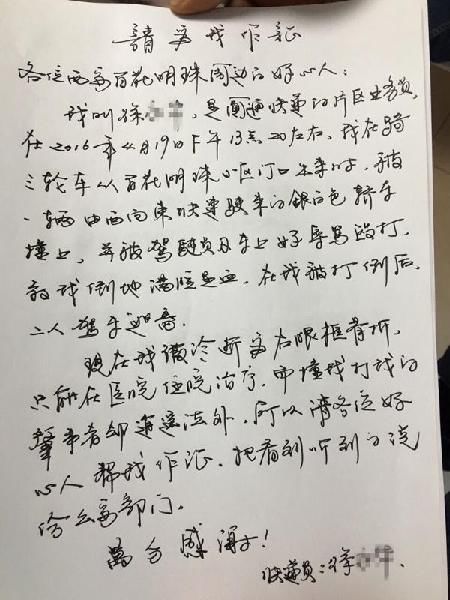 請为我作証
各位西安百花明珠周边的好心人：
我叫徐，是圆通快递的片区业务员，
在2016年4月19日下午13点20左右，我在骑
三轮车从百花明珠小区门口出来时，被
一辆由西向東快速驶来的銀白色轿车
撞上，并被驾驶员及车上好辱骂殴打，
致我倒地满脸是血，在我被打倒后，
二人驾车逃离。
现在我被诊断为右眼眶骨折，
只能在医院住院治疗，而撞我打我的
肇事者却逍遥法外，所以请各位好
心人帮我作证，把看到听到的说
给公安部门。
萬分感謝！
快递员：徐